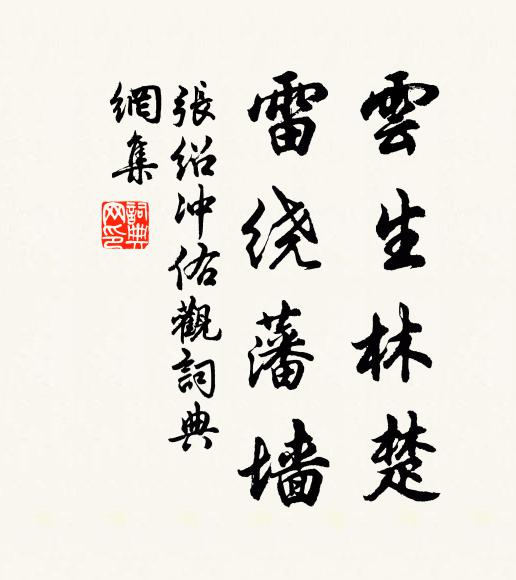 雲生林楚
雷绕藩墙
張紹冲佑觀詞典
網集
詞典
网印